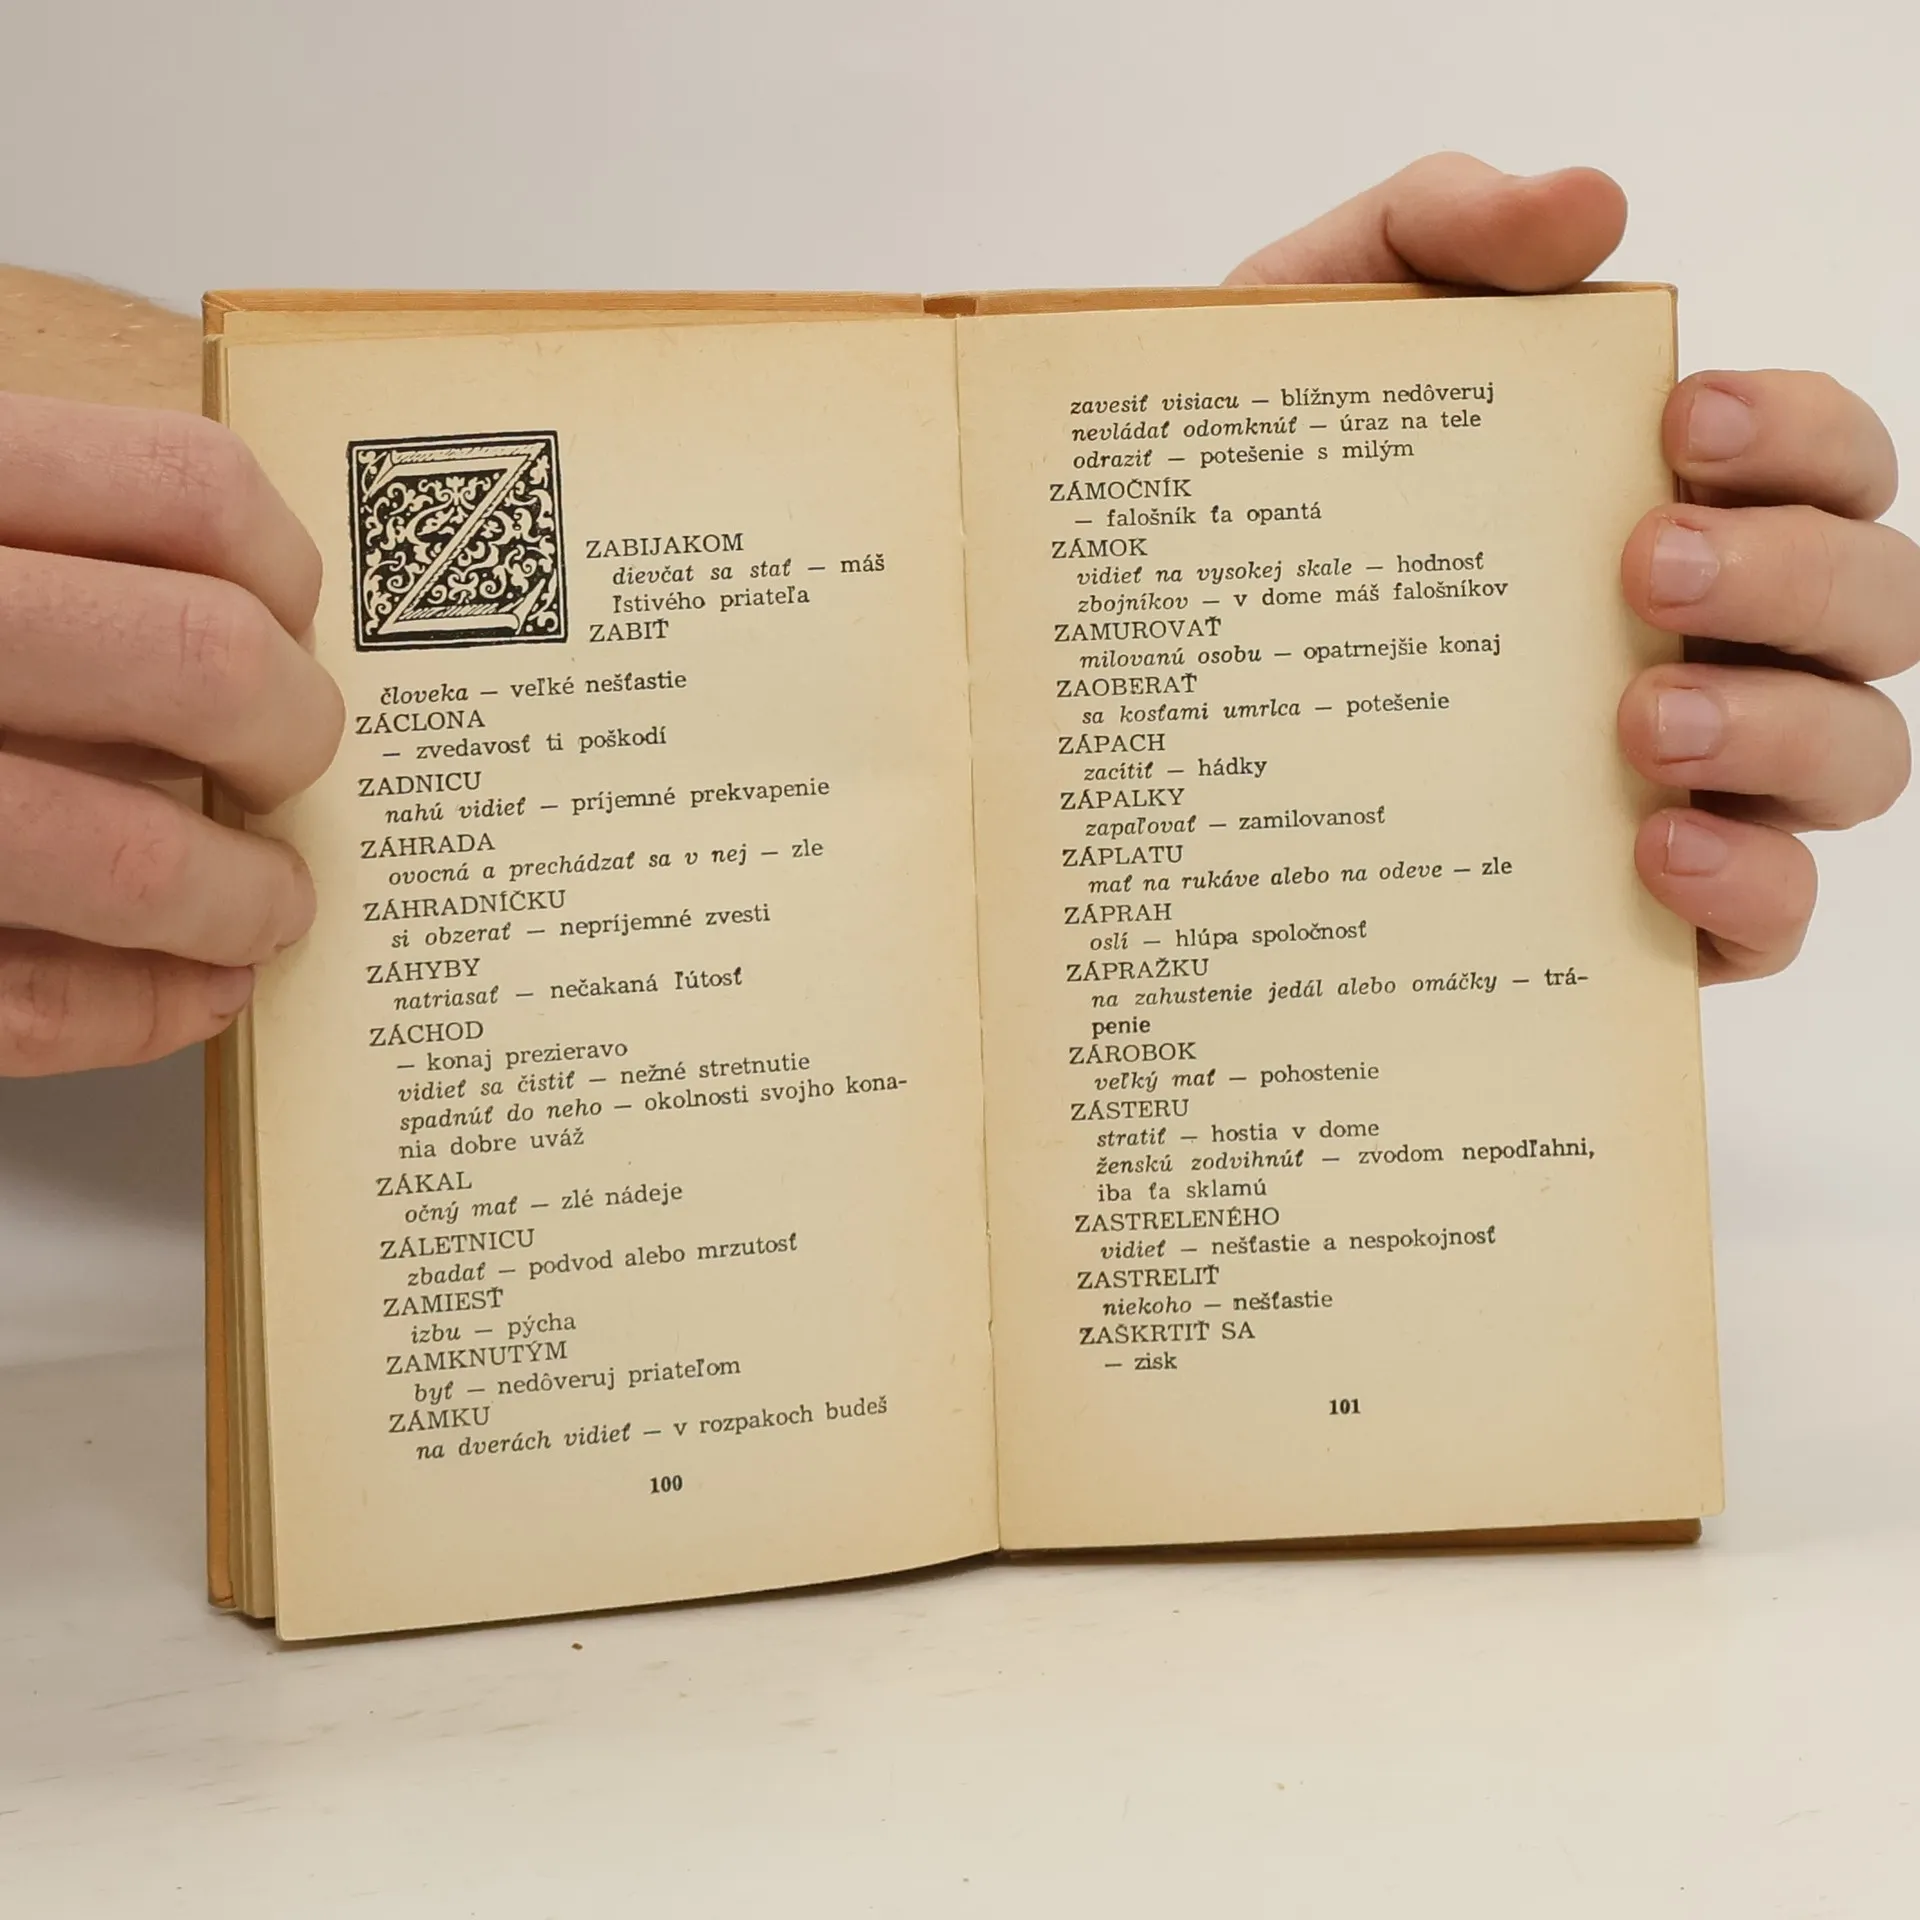 Z
ZABIJAKOM
dievčat sa stať — máš
ľstivého priateľa
ZABIŤ
človeka — veľké nešťastie
ZÁCLONA
— zvedavosť ti poškodí
ZADNICU
nahú vidieť — príjemné prekvapenie
ZÁHRADA
ovocná a prechádzať sa v nej — zle
ZÁHRADNÍČKU
si obzerať — nepríjemné zvesti
ZÁHYBY
natriasať — nečakaná ľútosť
ZÁCHOD
— konaj prezieravo
vidieť sa čistiť — nežné stretnutie
spadnúť do neho — okolnosti svojho kona-
nia dobre uváž
ZÁKAL
očný mať — zlé nádeje
ZÁLETNICU
zbadať — podvod alebo mrzutosť
ZAMIESŤ
izbu — pýcha
ZAMKNUTÝM
byť — nedôveruj priateľom
ZÁMKU
na dverách vidieť — v rozpakoch budeš
100
zavesiť visiacu — blížnym nedôveruj
nevládať odomknúť — úraz na tele
odraziť — potešenie s milým
ZÁMOČNÍK
— falošník ťa opantá
ZÁMOK
vidieť na vysokej skale — hodnosť
zbojníkov — v dome máš falošníkov
ZAMUROVAŤ
milovanú osobu — opatrnejšie konaj
ZAOBERAŤ
sa kosťami umrlca — potešenie
ZÁPACH
zacítiť — hádky
ZÁPALKY
zapaľovať — zamilovanosť
ZÁPLATU
mať na rukáve alebo na odeve — zle
ZÁPRAH
oslí — hlúpa spoločnosť
ZÁPRAŽKU
na zahustenie jedál alebo omáčky — trá-
penie
ZÁROBOK
veľký mať — pohostenie
ZÁSTERU
stratiť — hostia v dome
ženskú zodvihnúť — zvodom nepodľahni,
iba ťa sklamú
ZASTRELENÉHO
vidieť — nešťastie a nespokojnosť
ZASTRELIŤ
niekoho — nešťastie
ZAŠKRTIŤ SA
— zisk
101